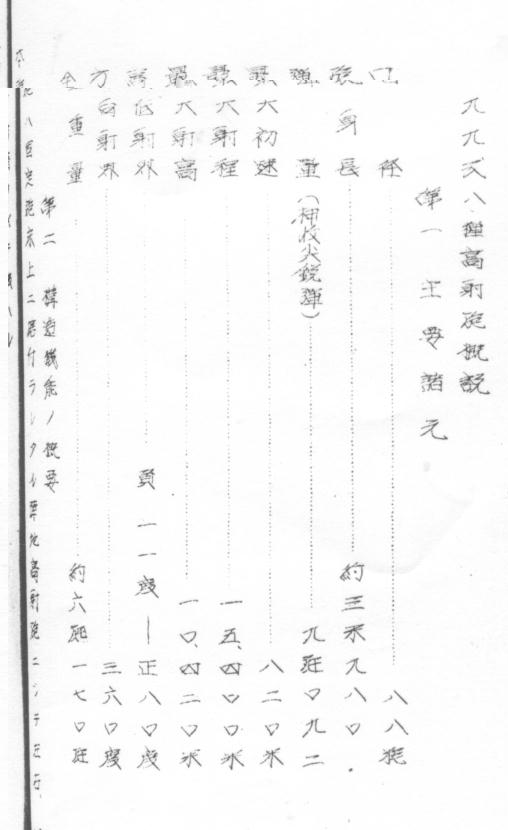 九九式八糎高射砲概説
第一 主要諸元
口径 八八粍
砲身長 約三米九八〇.
弾量(神枚尖鋭弾) 九瓩〇九二
最大初速 八二〇米
最大射程 一五、四〇〇米
最大射高 一〇、四二〇米
高低射界 負一一度—正八〇度
方向射界 三六〇度
全重量 約六瓲一七〇瓩
第二 構造機能ノ概要
本砲ハ固定砲床上ニ据付ラレタル陣地高射砲ニシテ